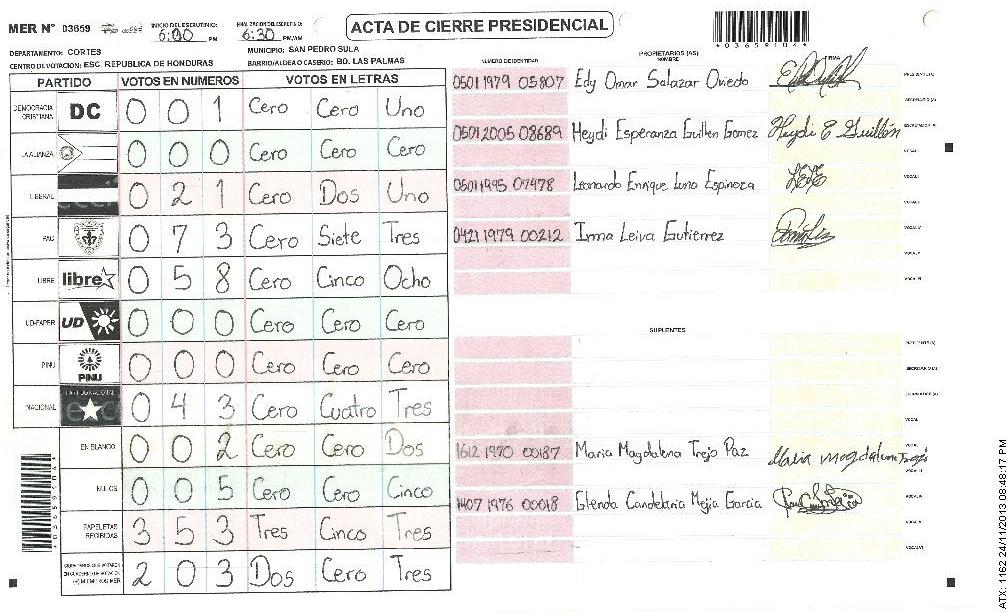 MER N° 03659
INICIO DEL ESCRUTINIO: 6:00 PM
FINALIZACION DEL ESCRUTINIO: 6:30 PM/AM
ACTA DE CIERRE PRESIDENCIAL
*03659104*
DEPARTAMENTO: CORTES
MUNICIPIO: SAN PEDRO SULA
CENTRO DE VOTACION: ESC. REPUBLICA DE HONDURAS
BARRIO/ALDEA O CASERIO: BO. LAS PALMAS
PARTIDO VOTOS EN NUMEROS VOTOS EN LETRAS
DEMOCRACIA CRISTIANA DC 0 0 1 Cero Cero Uno
LA ALIANZA 0 0 0 Cero Cero Cero
LIBERAL 0 2 1 Cero Dos Uno
PAC 0 7 3 Cero Siete Tres
LIBRE libre 0 5 8 Cero Cinco Ocho
UD-FAPER UD 0 0 0 Cero Cero Cero
PINU PINU 0 0 0 Cero Cero Cero
NACIONAL 0 4 3 Cero Cuatro Tres
EN BLANCO 0 0 2 Cero Cero Dos
NULOS 0 0 5 Cero Cero Cinco
PAPELETAS RECIBIDAS 3 5 3 Tres Cinco Tres
2 0 3 Dos Cero Tres
NUMERO DE IDENTIDAD
PROPIETARIOS (AS)
NOMBRE
FIRMA
0501 1979 05807 Edy Omar Salazar Oviedo
PRESIDENTE (A)
SECRETARIO (A)
0501 2005 08689 Heydi Esperanza Guillen Gomez Heydi E Guillén
ESCRUTADOR (A)
VOCAL I
0501 1995 07478 Leonardo Enrique Luna Espinoza
VOCAL II
VOCAL III
0421 1979 00212 Irma Leiva Gutierrez
VOCAL IV
VOCAL V
VOCAL VI
SUPLENTES
PRESIDENTE (A)
SECRETARIO (A)
ESCRUTADOR (A)
VOCAL I
1612 1970 00187 Maria Magdalena Trejo Paz Maria Magdalena Trejo
VOCAL II
VOCAL III
1407 1976 00018 Glenda Candelaria Mejia Garcia
VOCAL IV
VOCAL V
VOCAL VI
*03659104*
ATX: 1162 24/11/2013 08:48:17 PM